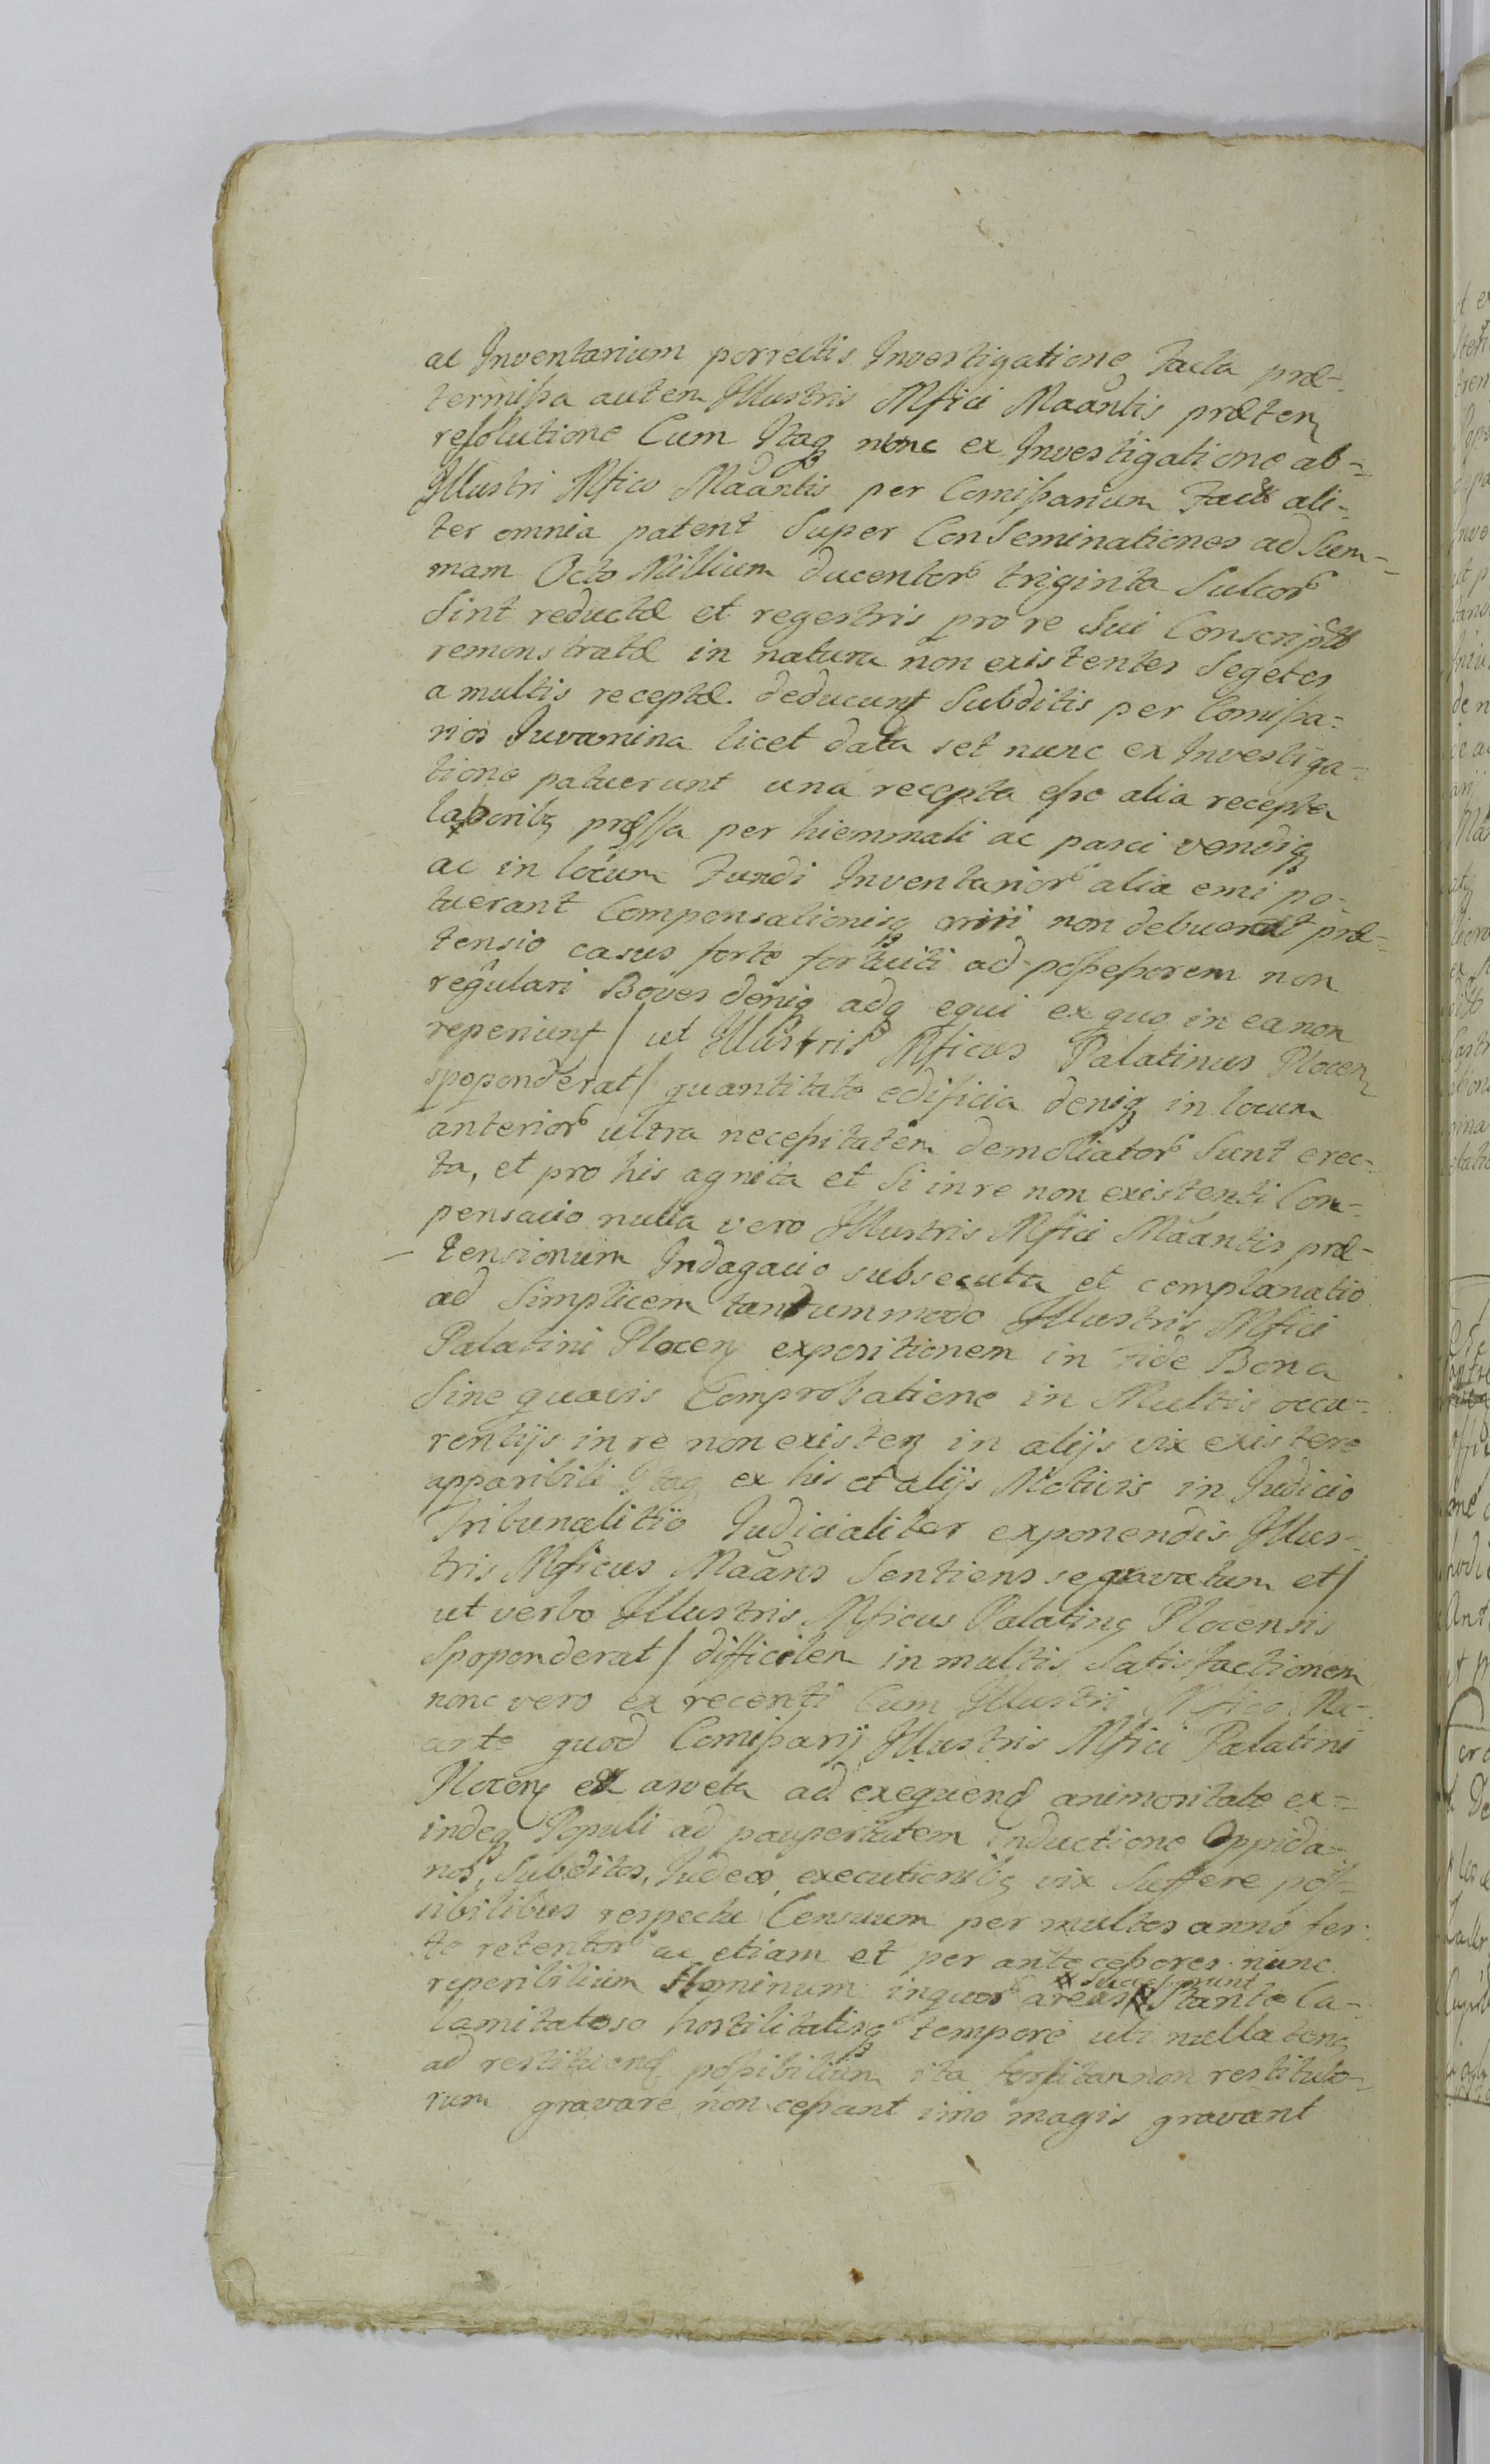 ac Inventarium porrectis Investigatione facta præ-
termissa autem Illustris Mfici Maantis præten
resolutione Cum Itaq nunc ex Investigatione ab-
Illustri Mfico Maantis per Comissarium Facta ali-
ter omnia patent Super Conseminationes ad Sum-
mam Octo Millium ducentor triginta Sulcor
Sint reductæ et regestris pro re Sui Conscriptæ
remonstratæ in natura non existentes Segetes
a multis receptæ deducunt Subditis per Comissa-
rios Juvamina licet data set nunc ex Investiga-
tione patuerunt una recepta esse alia recepta
laboribz præssa per hiemmali ac pasci vendiq
ac in locum Fundi Inventarior alia emi po-
tuerant Compensationisq oriri non debuerat præ-
tensio casus forte fortuiti ad possessorem non
regulari Boves deniq adq equi ex quo in ea non
reperiunt / ut Illustris Mficus Palatinus Plocen
spoponderat / quantitate edificia deniq in locum
anterior ultra necessitatem demoliator Sunt erec-
ta, et pro his agnita et Si in re non existenti Com-
pensatio nulla vero Illustris Mfici Maantis præ-
tensionum Indagatio subsecuta et complanatio
ad Simplicem tantummodo Illustris Mfici
Palatini Plocen expositionem in Fide Bona
Sine quavis Comprobatione in Multis occu-
rentijs in re non existen in alijs vix existere
apparibili Itaq ex his et alijs Motivis in Judicio
Tribunalitio Judicialiter exponendis Illus-
tris Mficus Maans Sentiens se gravatum et /
ut verbo Illustris Mficus Palating Plocensis
Spoponderat / difficilem in multis Satisfactionem
nunc vero ex recenti Cum Illustri Mfico Ma-
ante quod Comissarij Illustris Mfici Palatini
Plocen ex asveta ad exequend animositate ex-
indeq Populi ad paupertatem inductione Oppida-
nos, Subditos, Judeos, executionibz vix Suffere pos-
sibilibus respectu Censuum per multos anno for-
te retentor ac etiam et per antecessores nunc
reperibilium Hominum inquor areas Stante Ca-
lamitatoso hostilitatisq tempore ubi nulla teng
ad restituend possibilium ita forsitan non restituto-
rum gravare non cessant imo magis gravant